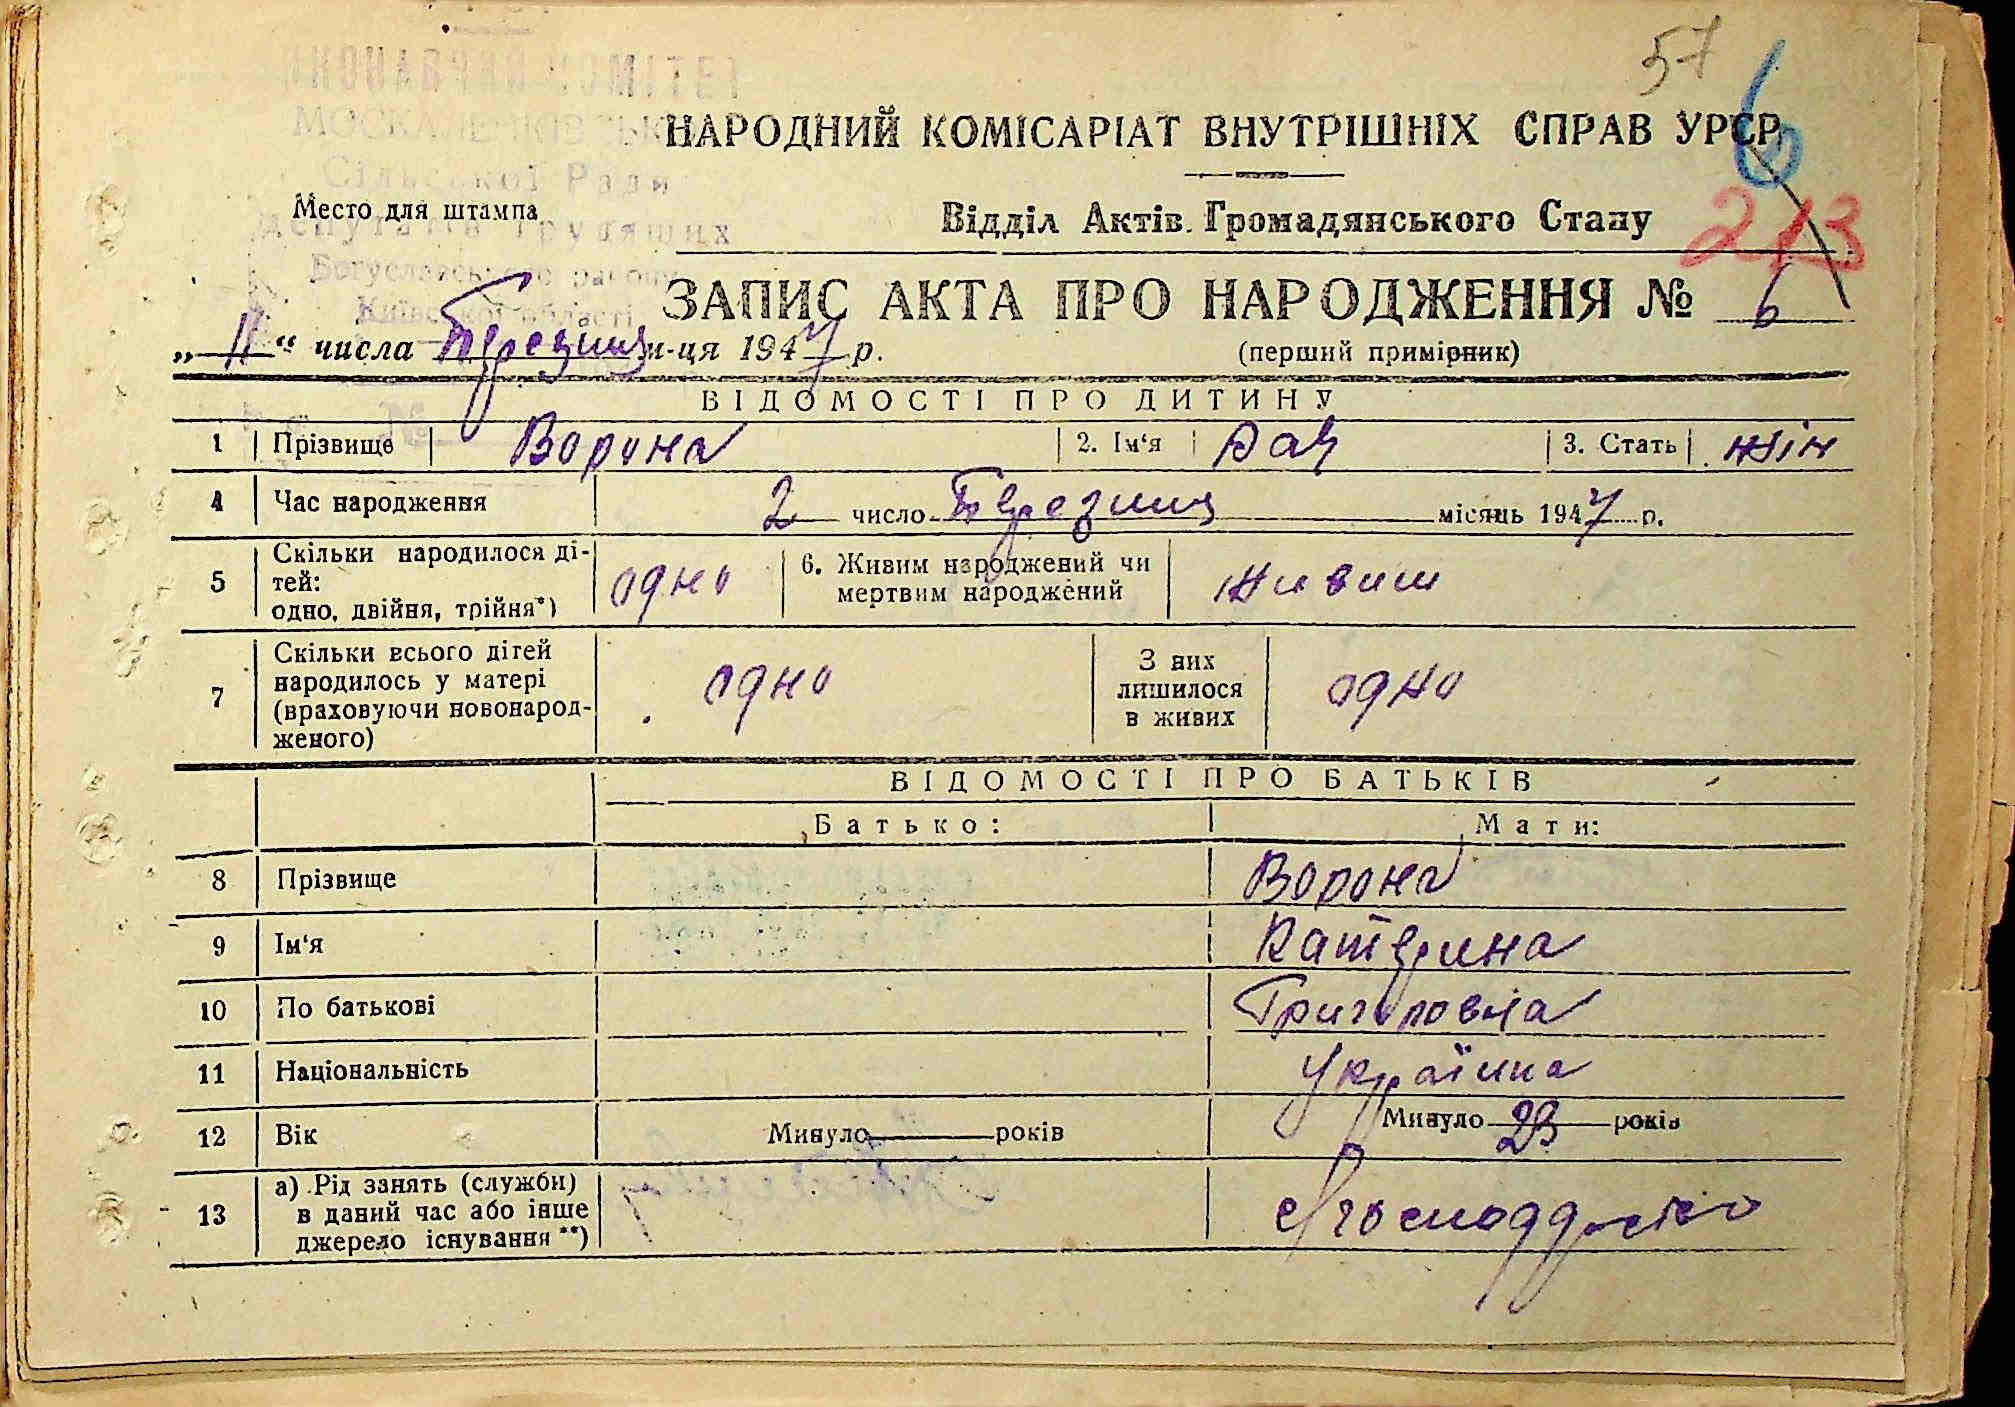 57
6
ВИКОНАВЧИЙ КОМІТЕТ
МОСКАЛЕНКІВСЬКОЇ
Сільської Ради
депутатів трудящих
Богуславського району
Київської області
№
НАРОДНИЙ КОМІСАРІАТ ВНУТРІШНІХ СПРАВ УРСР
Место для штампа
Відділ Актів Громадянського Стану
213
ЗАПИС АКТА ПРО НАРОДЖЕННЯ № 6
„11“ числа Березня м-ця 1947 р.
(перший примірник)
ВІДОМОСТІ ПРО ДИТИНУ
1 Прізвище Ворона 2. Ім‘я 3. Стать жін
4 Час народження 2 число Березня місяць 1947 р.
5 Скільки народилося ді-
тей:
одно, двійня, трійня*) одно 6. Живим народжений чи
мертвим народжений живим
7 Скільки всього дітей
народилось у матері
(враховуючи новонарод-
женого) одно З них
лишилося
в живих одно
ВІДОМОСТІ ПРО БАТЬКІВ
Батько: Мати:
8 Прізвище Ворона
9 Ім‘я Катерина
10 По батькові Григоровна
11 Національність Українка
12 Вік Минуло років Минуло 23 років
13 а) Рід занять (служби)
в даний час або інше
джерело існування **)